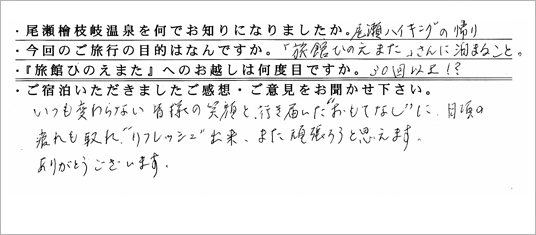 ・尾瀬檜枝岐温泉を何でお知りになりましたか。尾瀬ハイキングの帰り
・今回のご旅行の目的はなんですか。「旅館ひのえまた」さんに泊まること。
・『旅館ひのえまた』へのお越しは何度目ですか。30回以上!?
・ご宿泊いただきましたご感想・ご意見をお聞かせ下さい。
いつも変わらない皆様の笑顔と、行き届いた"おもてなし"に、日頃の
疲れも取れ、"リフレッシュ"出来、また頑張ろうと思えます。
ありがとうございます。